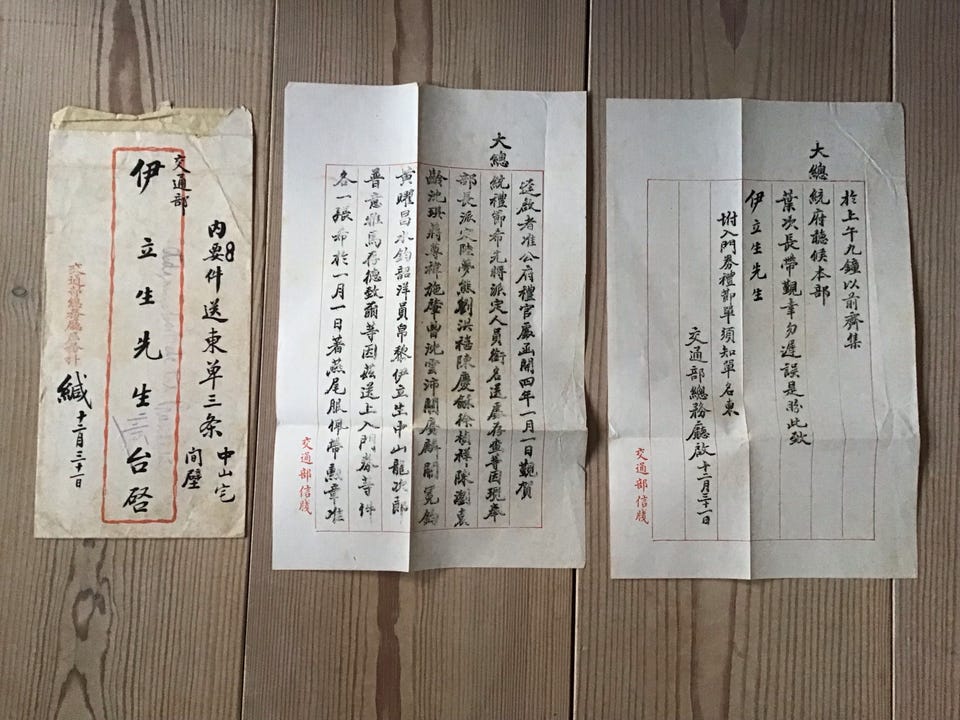 內要件送東单三条
中山宅
间壁
交通部
伊立生先生台啓
緘
十二月三十一日
逕啟者准公府禮官處函開四年一月一日觀賀
大總
統禮節希先將派定人員銜名送處存查等因現奉
部長派定陸夢熊劉洪禧陳慶龢徐楨祥陳瀏袁
齡沈琪蔣尊禕施肇曾沈雲沛關賡麟關冕鈞
黃曜昌水鈞韶洋員帛黎伊立生中山龍次郎
普意雅馬存德致爾等因茲送上入門券壹件
各一張希於一月一日著燕尾服佩帶勲章准
交通部信牋
於上午九鐘以前齊集
大總
統府聽候本部
葉次長帶觀幸勿遲誤是盼此致
伊立生先生
坿入門券禮節單須知單名柬
交通部總務廳啟 十二月三十一日
交通部信牋